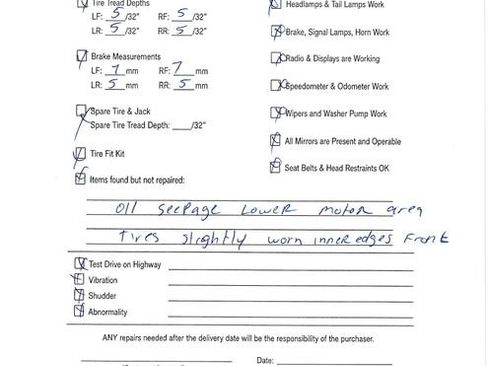 Tire Tread Depths
LF: 5 /32" RF: 5 /32"
LR: 5 /32" RR: 5 /32"
Brake Measurements
LF: 7 mm RF: 7 mm
LR: 5 mm RR: 5 mm
Spare Tire & Jack
Spare Tire Tread Depth: ___/32"
Tire Fit Kit
Items found but not repaired:
Headlamps & Tail Lamps Work
Brake, Signal Lamps, Horn Work
Radio & Displays are Working
Speedometer & Odometer Work
Wipers and Washer Pump Work
All Mirrors are Present and Operable
Seat Belts & Head Restraints OK
Oil seepage Lower motor area
Tires slightly worn inner edges Front
Test Drive on Highway
Vibration
Shudder
Abnormality
ANY repairs needed after the delivery date will be the responsibility of the purchaser.
Date: